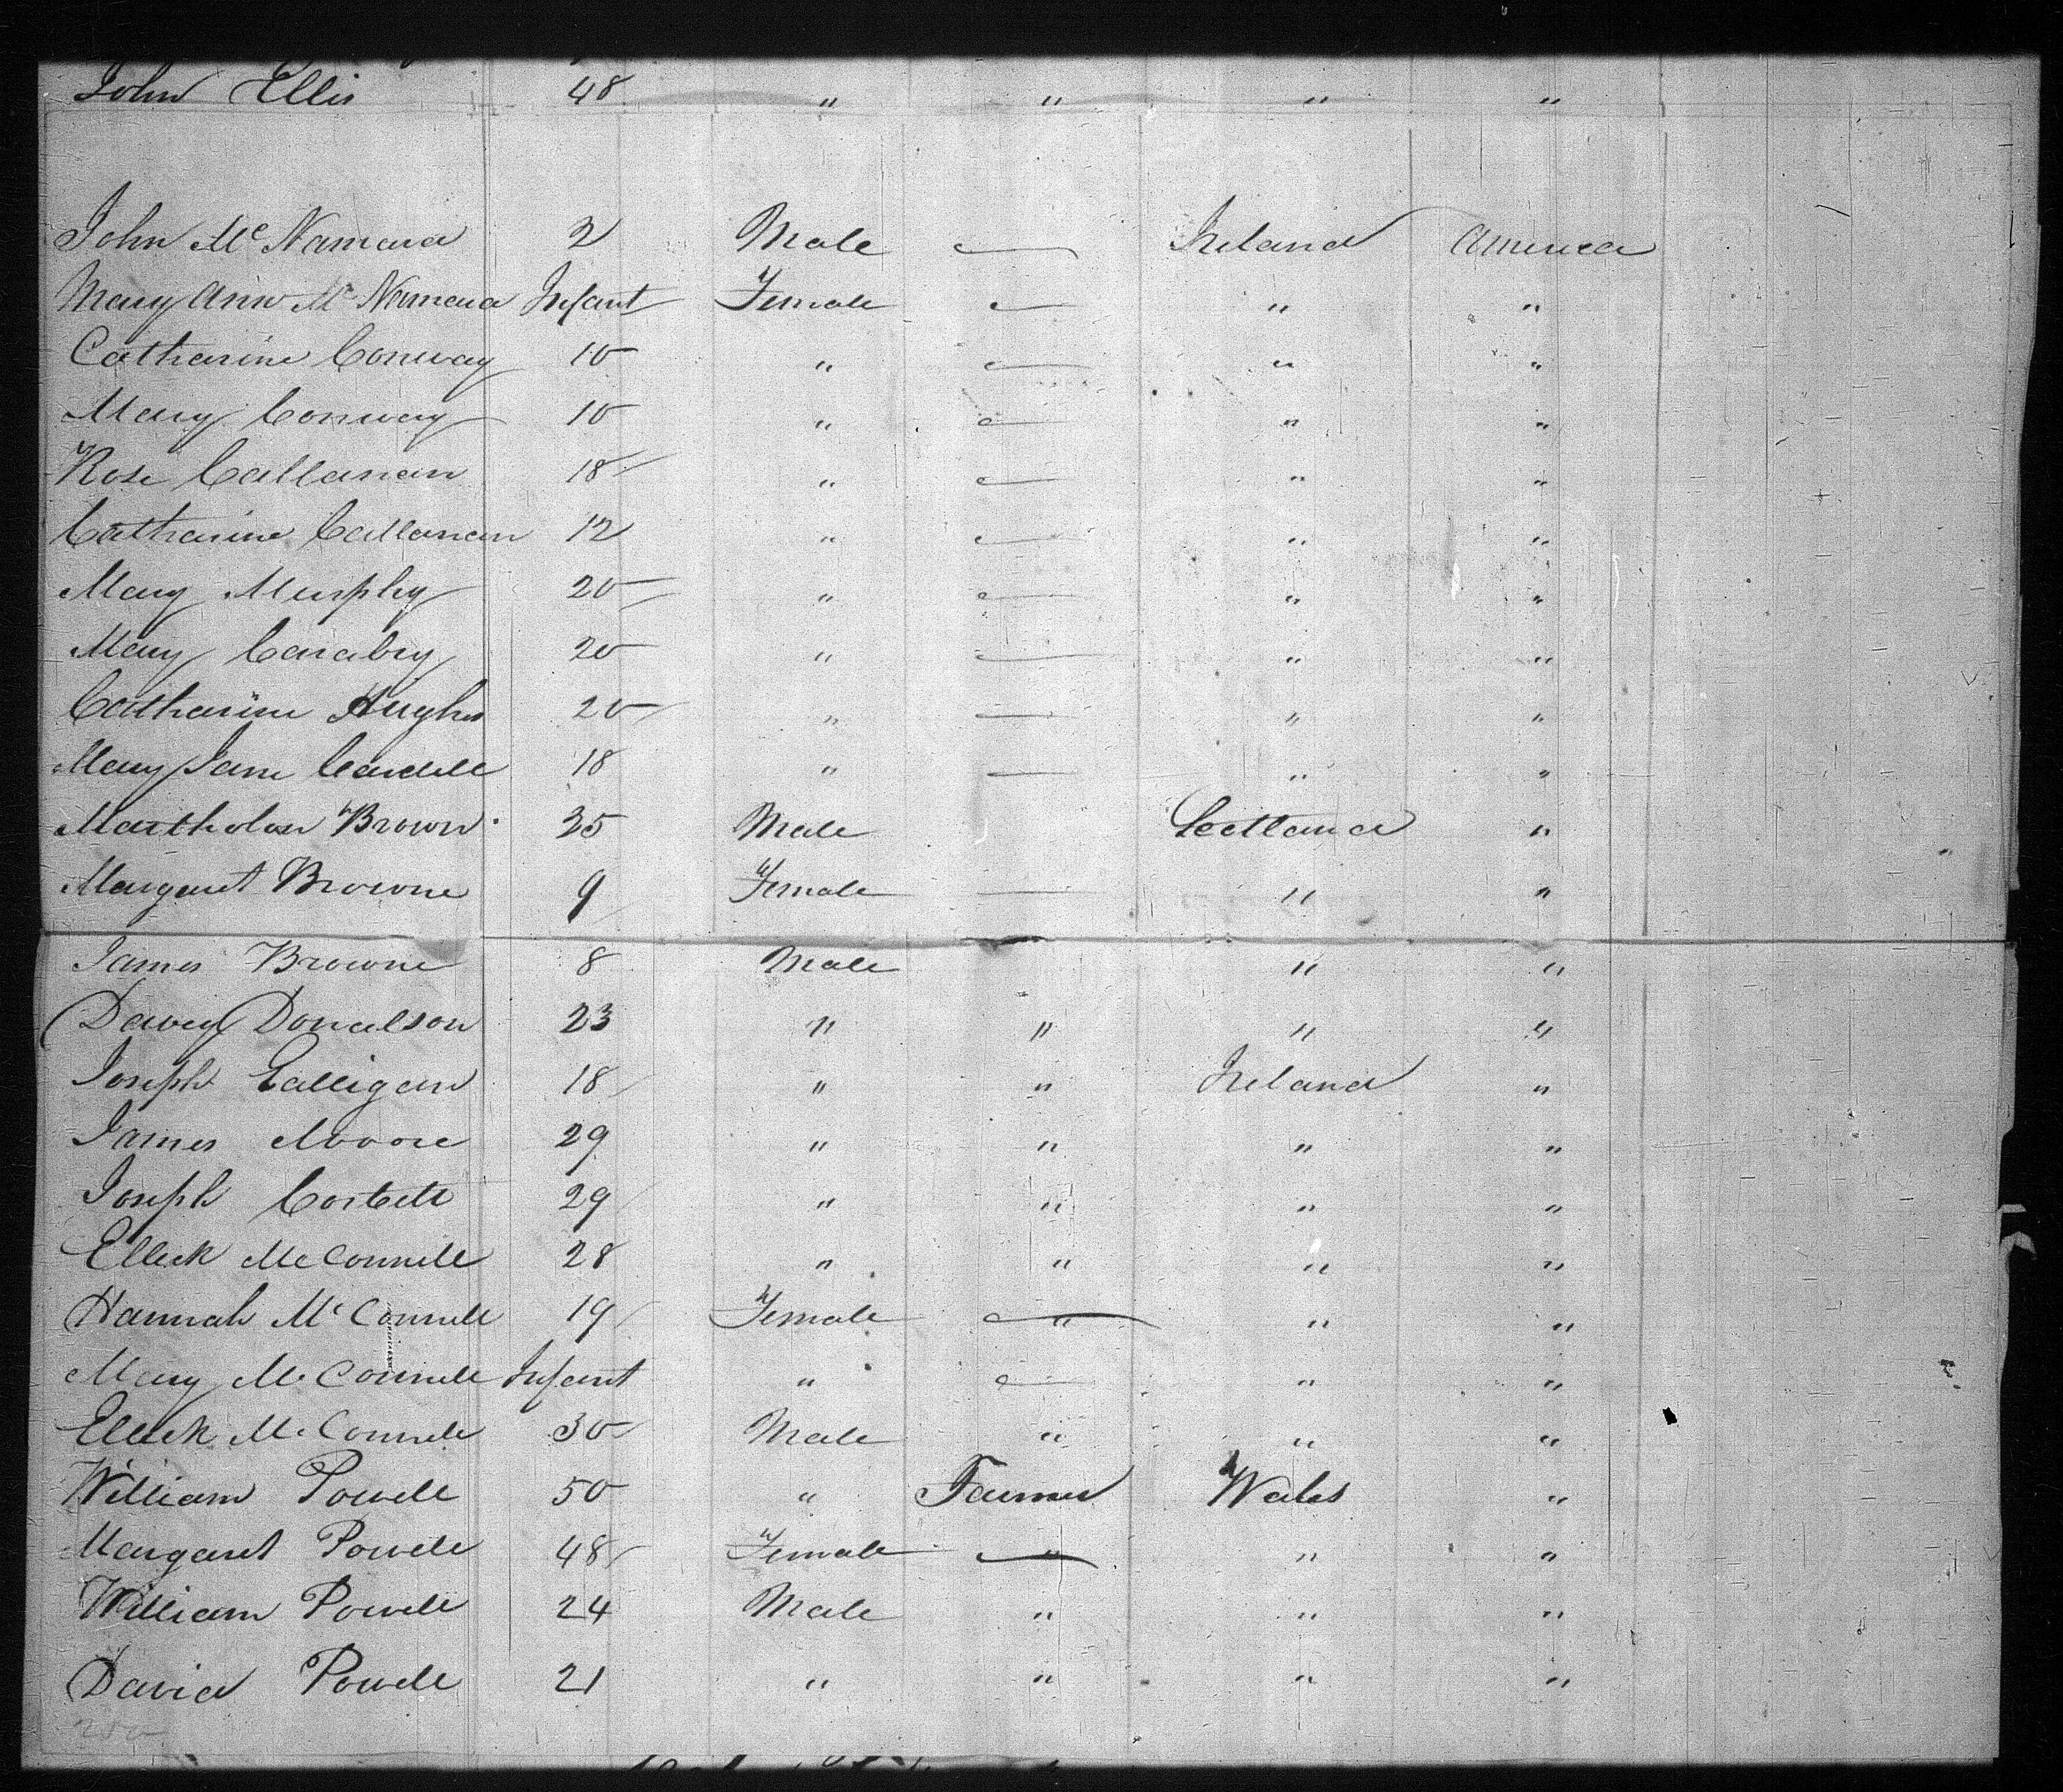 John Ellis 48 " " " "
John McNamara 2 Male — Ireland America
Mary Ann McNamara Infant Female — " "
Catharine Conway 10 " — " "
Mary Conway 10 " — " "
Rose Callanan 18 " — " "
Catharine Callanan 12 " — " "
Mary Murphy 20 " — " "
Mary Caraby 20 " — " "
Catharine Hughes 20 " — " "
Mary Jane Cardell 18 " — " "
Brown 35 Male "
Margaret Browne 9 Female — " "
James Browne 8 Male " "
Davey Donalson 23 " " " "
Joseph Galligan 18 " " Ireland "
James Moore 29 " " " "
Joseph Corbett 29 " " " "
Elleck McConnell 28 " " " "
Hannah McConnell 19 Female " " "
Mary McConnell Infant " — " "
Elleck McConnell 30 Male " " "
William Powell 50 " Farmer Wales "
Margaret Powell 48 Female " " "
William Powell 24 Male " " "
David Powell 21 " " " "
200